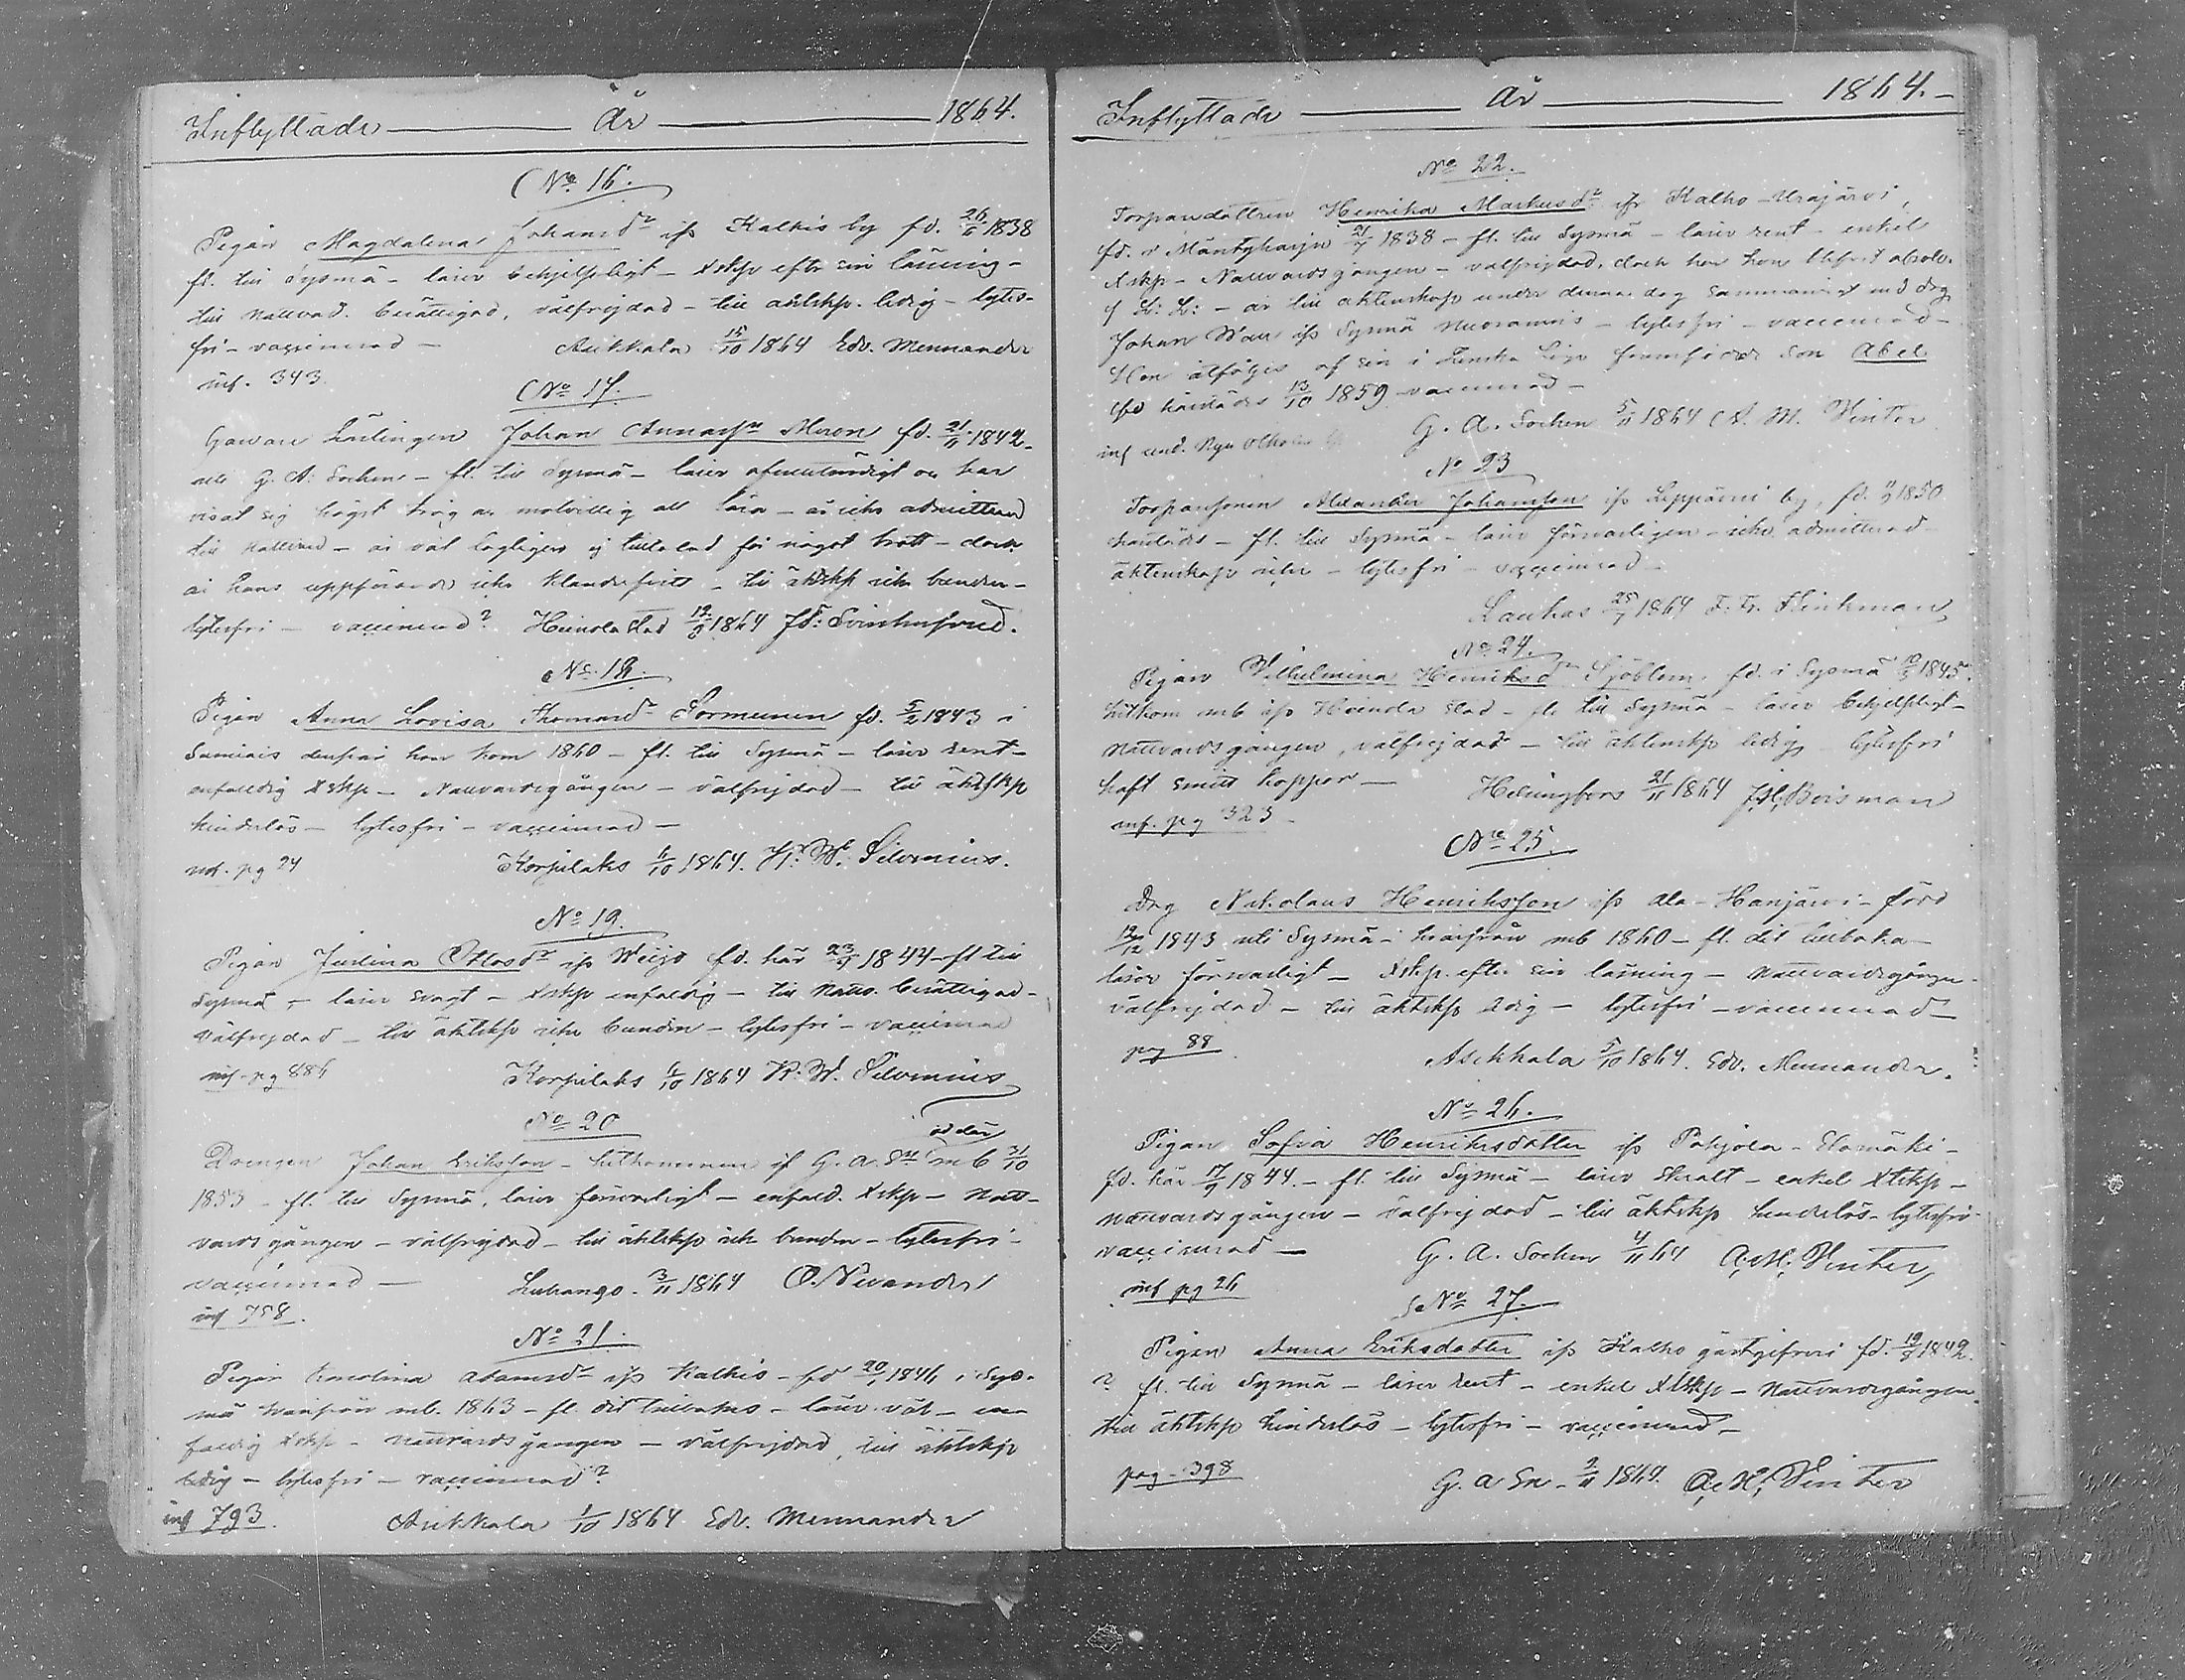 Inflyttade År 1864.
No 16.
Pigan Magdalena Johansdr ifr Kalkis by fd. 26/11 1838
fl. till Sysmä - läser behjelpligt - Xskp efter sin läsning -
till Nattvard. berättigad, välfrejdad - till äktskp. ledig - lytes-
fri - vaccinerad - Asikkala 15/10 1864 Edv. Mennander
inf. 343.
No 17.
Garvare Lärlingen Johan Miron fd. 21/11 1842
G. A. Socken - fl. till Sysmä - läser och har
visat sig högst trög och motvillig att lära - är icke admitterad
till Nattvard - är väl lagligen ej tilltalad för något brott - dock
är hans uppförande icke klanderfritt - till äktskp icke bunden -
lytesfri - vaccinerad? Heinola Stad 12/8 1864
No 18.
Pigan Anna Lovisa Thomasdr Sormunen fd. 5/2 1843 i
Sumiais derifrån hon kom 1860 - fl. till Sysmä - läser rent -
enfaldig Xskp - Nattvardsgången - välfrejdad - till äktskp
hinderlös - lytesfri - vaccinerad -
inf. pg 24 Korpilaks 6/10 1864. H. W. Silvenius.
No 19.
Pigan Justina Ottosdr ifr Weijo fd. här 23/9 1844 - fl till
Sysmä - läser svagt - Xskp enfaldig - till Nattv. berättigad -
Välfrejdad - till äktskp icke bunden - lytesfri - vaccinerad
inf. pg 886 Korpilaks 6/10 1864 H. W. Silvenius
No 20
Drengen Johan Eriksson - hitkommen if G. A. mb 31/10
1853 - fl. till Sysmä, läser försvarligt - enfald. Xskp - Natt-
vards gången - välfrejdad - till äktskp icke bunden - lytesfri -
vaccinerad - Luhango. 3/11 1864 O. Nevander
inf 758.
No 21.
Pigan Karolina Adamsdr ifr Kalkis - fd 20/1 1846 i Sys-
mä hvarifrån mb. 1863 - fl. dit tillbakas - läser väl - en-
faldig Xskp - nattvards gången - välfrejdad, till äktskp
ledig - lytesfri - vaccinerad?
inf 793. Asikkala 1/10 1864 Edv. Mennander
Inflyttade År 1864.-
No 22.
Torpardottren Henrika Markusdr ifr Kalho - Urajärvi,
fd. i Mäntyharju 21/7 1838 - fl. till Sysmä - läser rent - enkel
Xskp - Nattvards gången - välfrejdad, dock har hon absolv.
- är till äktenskap under denna dag med drg
Johan ifr Sysmä Nuoramois - lytesfri - vaccinerad -
Hon åtföljes af sin i son Abel
fd härstädes 13/10 1859 vaccinerad -
G. A. Socken 5/11 1864 A. M. Winter
No 23
Torparsonen Alexander Johansson ifr Leppäsui by, fd. 1850
härstädes - fl. till Sysmä - läser försvarligen - icke admitterad -
äktenskap - lytesfri - vaccinerad -
Laukas 25/7 1864 Flinkman
No 24.
Pigan Wilhelmina Henriksdr Sjöblom fd. i Sysmä 1845.
hitkom mb ifr Heinola stad - fl. till Sysmä - läser behjelpligt -
Nattvards gången, välfrejdad - till äktenskp ledig lytesfri
haft koppor - Helsingfors 21/11 1864 Boisman
inf. pg 323
No 25.
Drg Nikolaus Henriksson ifr Ala - född
12/12 1843 uti Sysmä - hvarifrån mb 1860 - fl. dit tillbaka -
läser försvarligt - Xskp. efter sin läsning - Nattvardsgången -
välfrejdad - till äktskp ledig - lytesfri - vaccinerad -
pag 88 Asikkala 5/10 1864. Edv. Mennander.
No 26.
Pigan Sofia Henriksdotter ifr Pohjola - Elomäki -
fd. här 17/9 1844. - fl. till Sysmä - läser - enkel Xskp -
nattvards gången - välfrejdad - till äktskp hinderlös - lytesfri -
vaccinerad - G. A. Socken 4/11 64 A. M. Winter
inf pg 26
No 27.
Pigan Anna Eriksdotter ifr Kalho gästgifveri fd. 19/8 1842.
? fl. till Sysmä - läser rent - enkel Xskp - Nattvardsgången
till äktskp hinderlös - lytesfri - vaccinerad -
pag. 398 G. A. Sn - 2/11 1864. A. M. Winter